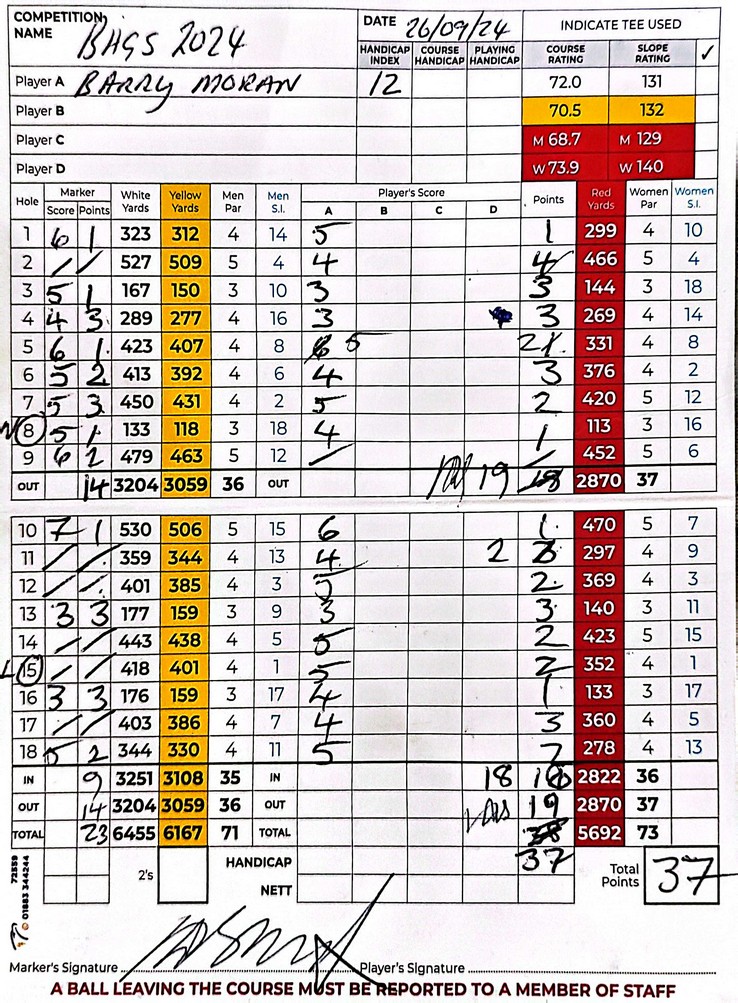 COMPETITION NAME BHGS 2024 DATE 26/09/24 INDICATE TEE USED
HANDICAP INDEX COURSE HANDICAP PLAYING HANDICAP COURSE RATING SLOPE RATING ✓
Player A BARRY MORAN 12 72.0 131
Player B 70.5 132
Player C M 68.7 M 129
Player D W 73.9 W 140
Hole Marker Score Points White Yards Yellow Yards Men Par Men S.I. Player's Score A B C D Points Red Yards Women Par Women S.I.
1 6 1 323 312 4 14 5 1 299 4 10
2 / / 527 509 5 4 4 4 466 5 4
3 5 1 167 150 3 10 3 3 144 3 18
4 4 3 289 277 4 16 3 3 269 4 14
5 6 1 423 407 4 8 5 2 331 4 8
6 5 2 413 392 4 6 4 3 376 4 2
7 5 3 450 431 4 2 5 2 420 5 12
8 5 1 133 118 3 18 4 1 113 3 16
9 6 2 479 463 5 12 / / 452 5 6
OUT 14 3204 3059 36 OUT 19 2870 37
10 7 1 530 506 5 15 6 1 470 5 7
11 / / 359 344 4 13 4 2 297 4 9
12 / / 401 385 4 3 5 2 369 4 3
13 3 3 177 159 3 9 3 3 140 3 11
14 / / 443 438 4 5 5 2 423 5 15
15 / / 418 401 4 1 5 2 352 4 1
16 3 3 176 159 3 17 4 1 133 3 17
17 / / 403 386 4 7 4 3 360 4 5
18 5 2 344 330 4 11 5 2 278 4 13
IN 9 3251 3108 35 IN 18 2822 36
OUT 14 3204 3059 36 OUT 19 2870 37
TOTAL 23 6455 6167 71 TOTAL 5692 73
2's HANDICAP 37 Total Points 37
NETT
72559
01883 344244
Marker's Signature Player's Signature
A BALL LEAVING THE COURSE MUST BE REPORTED TO A MEMBER OF STAFF